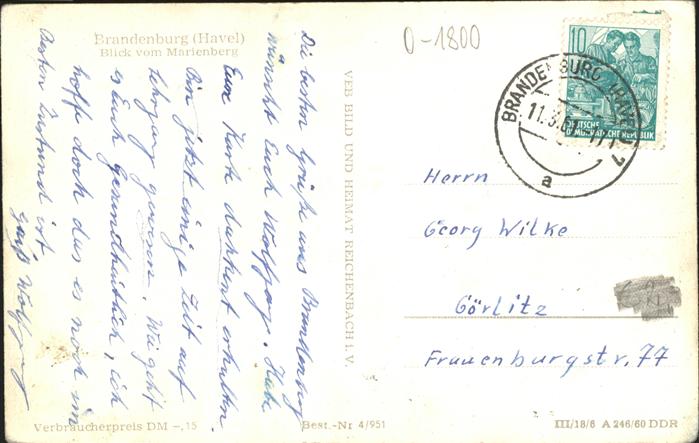 Brandenburg (Havel)
Blick vom Marienberg
0-1800
10
DEUTSCHE
DEMOKRATISCHE REPUBLIK
BRANDENBURG (HAVEL) 1
11.3.6
a
Die besten Grüße aus Brandenburg
wünscht Euch Wolfgang. Habe
Eure Karte dankent erhalten.
Bin jetzt einige Zeit auf
Lehrgang gewesen. Wie geht
es Euch Gesundheitlich, ich
hoffe doch das es noch im
besten Zustand ist
Gruß Wolfgang
VEB BILD UND HEIMAT REICHENBACH i. V.
Herrn
Georg Wilke
Görlitz
Frauenburgstr. 77
Verbraucherpreis DM -,15
Best.-Nr 4/951
III/18/6 A 246/60 DDR